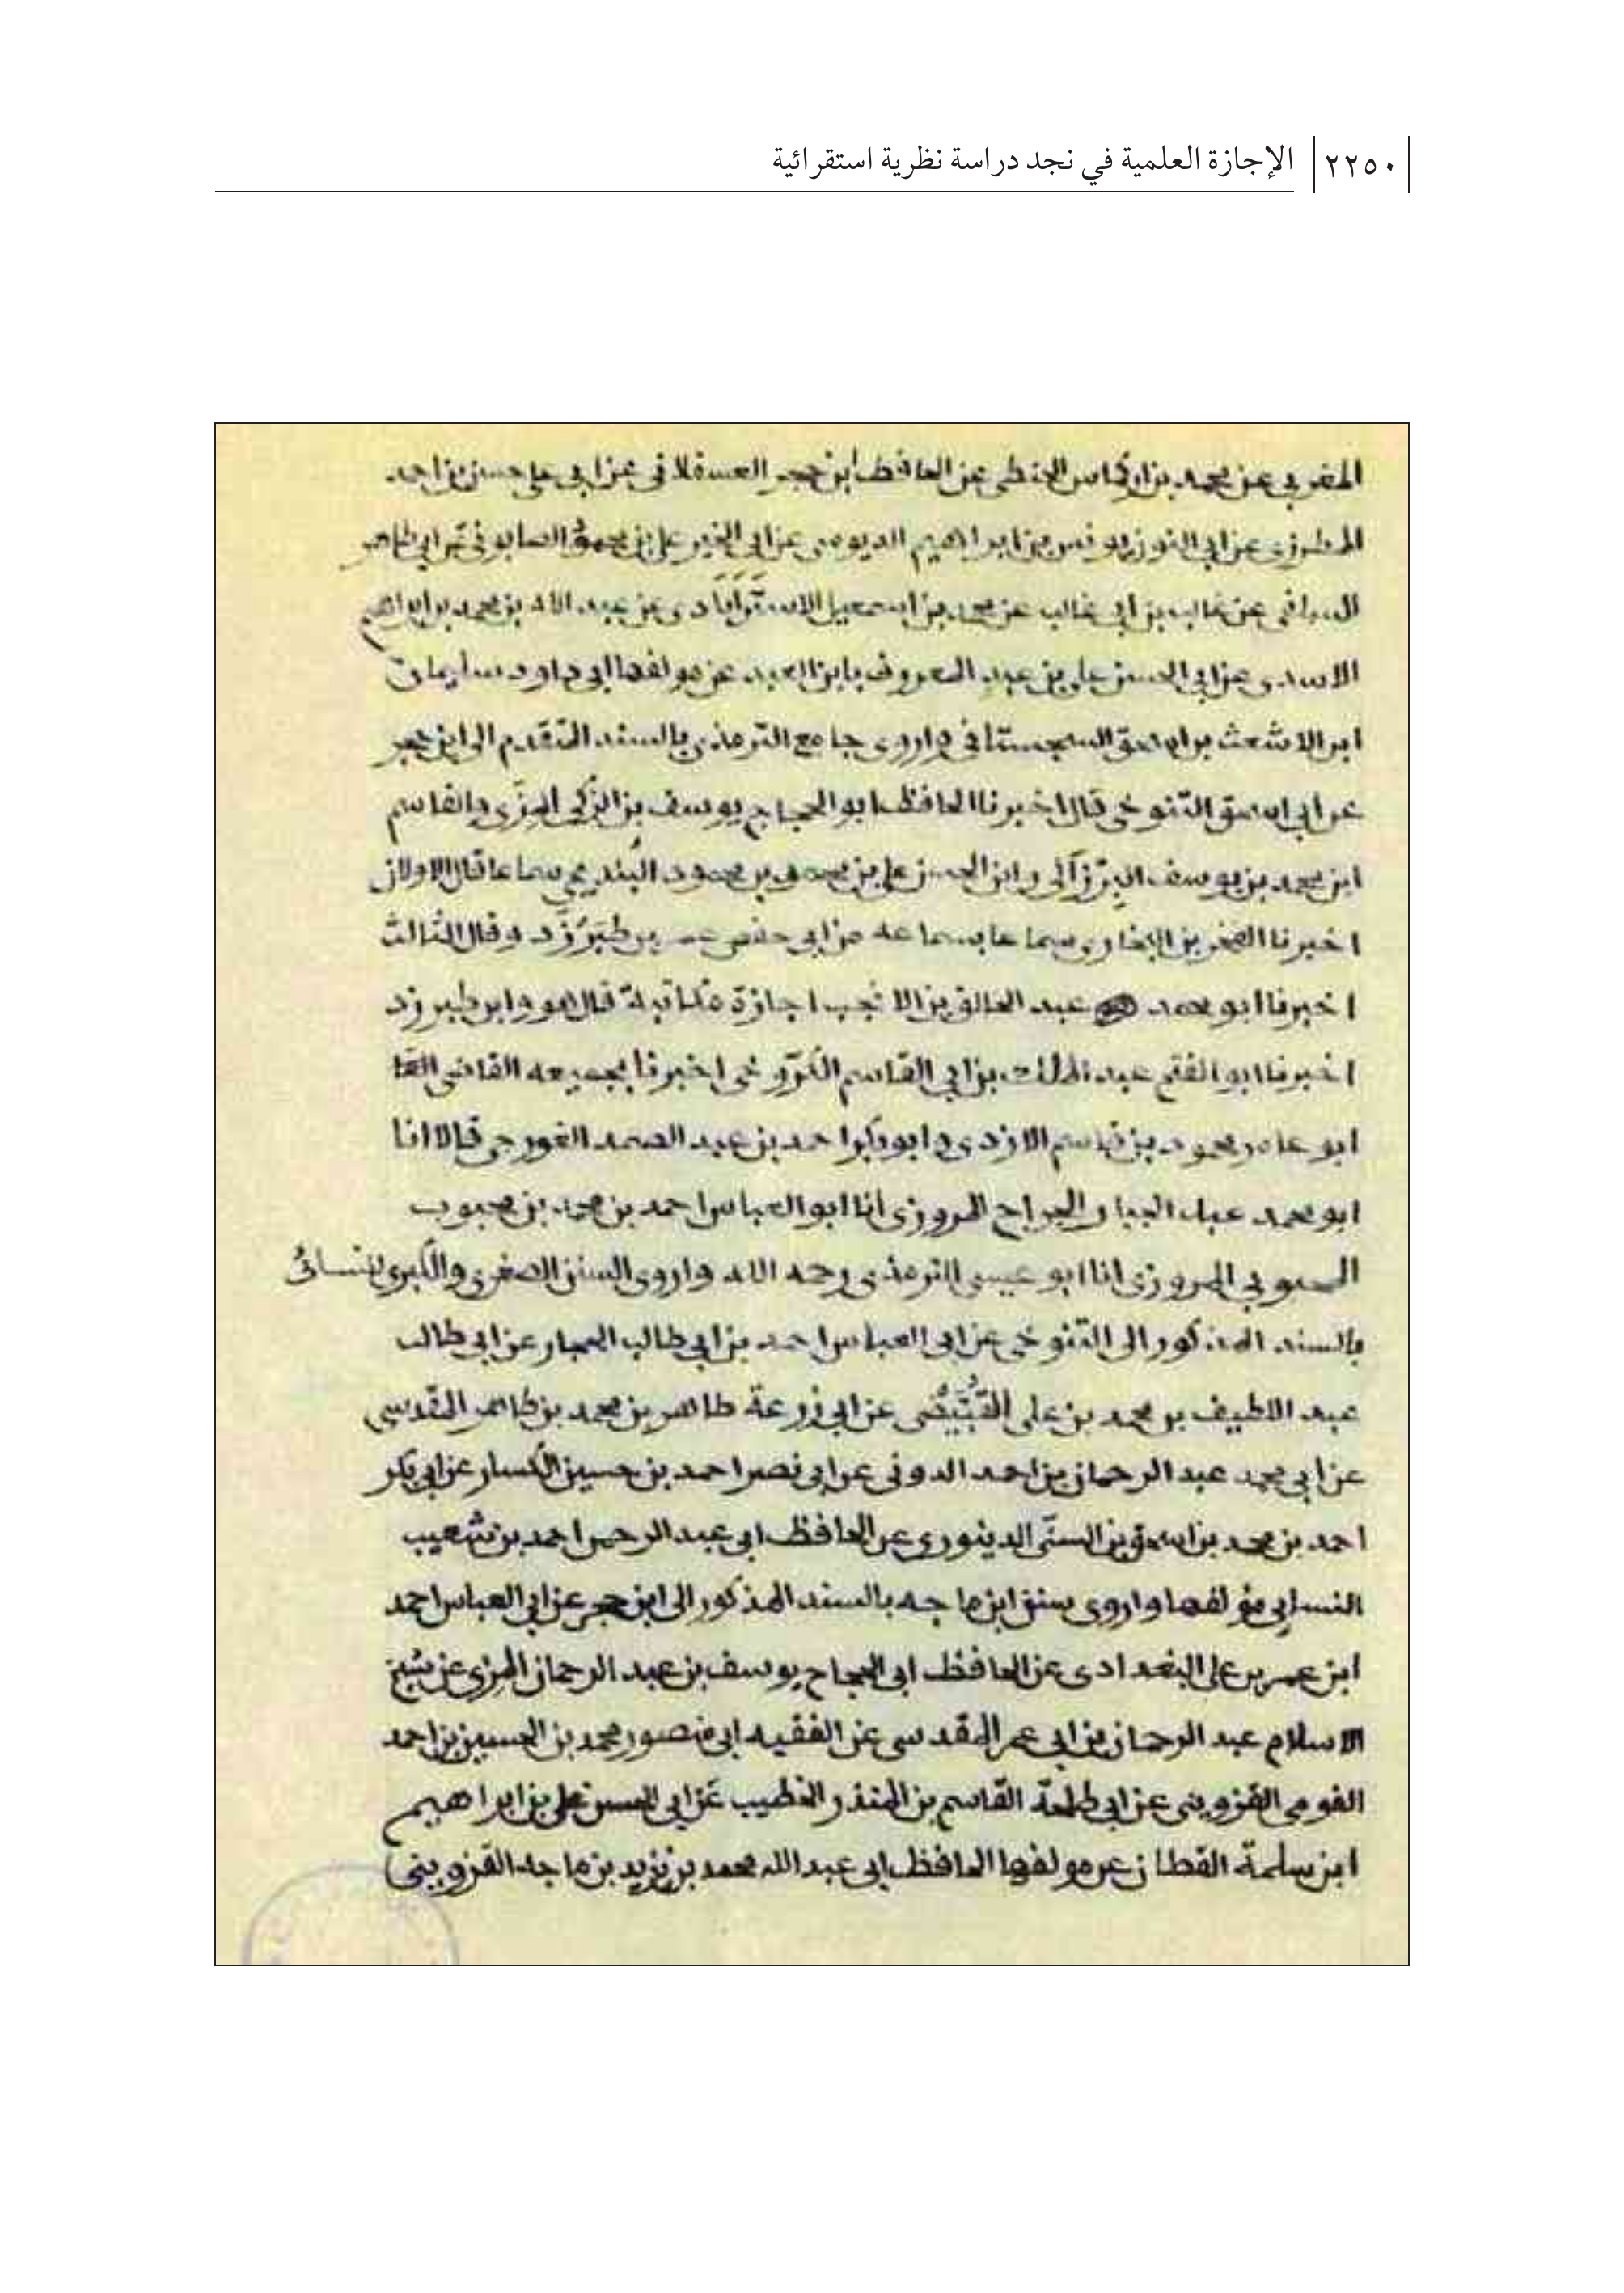 ٢٢٥٠ الإجازة العلمية في نجد دراسة نظرية استقرائية
المغربي عن محمد بن اركماس الحنفي عن الحافظ ابن حجر العسقلاني عن ابي علي حسن بن احمد
المطرزي عن ابي النون يونس بن ابراهيم الدبوسي عن ابي الخير علي بن محمود الصابوني عن ابي طاهر
السلفي عن غالب بن ابي غالب عن محمد بن اسمعيل الاستَرَابَادي عن عبد الله بن محمد بن ابراهيم
الاسدي عن ابي الحسن علي بن عبد المعروف بابن العبد عن مولفها ابي داود سليمان
ابن الاشعث بن اسحق السجستاني واروي جامع الترمذي بالسند المتقدم الى ابن حجر
عن ابي اسحق التنوخي قال اخبرنا الحافظ ابو الحجاج يوسف بن الزكي المزّي والقاسم
ابن محمد بن يوسف البرزالي وابن الحسن علي بن محمد بن محمود البندنيجي سماعا قال الاولان
اخبرنا الفخر بن البخاري سماعا بسماعه من ابي حفص عمر بن طَبَرْزَد وقال الثالث
اخبرنا ابو محمد عبد الخالق بن الانجب اجازة مكاتبة قال هو وابن طبرزد
اخبرنا ابو الفتح عبد الملك بن ابي القاسم الكَرَوخي اخبرنا بجميعه القاضي
ابو عامر محمود بن قاسم الازدي وابو بكر احمد بن عبد الصمد الغورجي قالا انا
ابو محمد عبد الجبار الجراح المروزي انا ابو العباس احمد بن محمد بن محبوب
المحبوبي المروزي انا ابو عيسى الترمذي رحمه الله واروي السنن الصغرى والكبرى للنسائى
بالسند المذكور الى التنوخي عن ابي العباس احمد بن ابي طالب الحجار عن ابي طالب
عبد اللطيف بن محمد بن علي القُبَّيْطي عن ابي زرعة طاهر بن محمد بن طاهر المقدسي
عن ابي محمد عبد الرحمان بن احمد الدوني عن ابي نصر احمد بن حسين الكسار عن ابي بكر
احمد بن محمد بن اسحق بن السنّي الدينوري عن الحافظ ابي عبد الرحمن احمد بن شعيب
النسايي مؤلفها واروي سنن ابن ماجه بالسند المذكور الى ابن حجر عن ابي العباس احمد
ابن عمر بن علي البغدادي عن الحافظ ابي الحجاج يوسف بن عبد الرحمان المزي عن شيخ
الاسلام عبد الرحمان بن ابي عمر المقدسي عن الفقيه ابي منصور محمد بن الحسين بن احمد
القومي القزويني عن ابي طلحة القاسم بن المنذر الخطيب عن ابي الحسن علي بن ابراهيم
ابن سلمة القطان عن مولفها الحافظ ابي عبد الله محمد بن يزيد بن ماجه القزويني